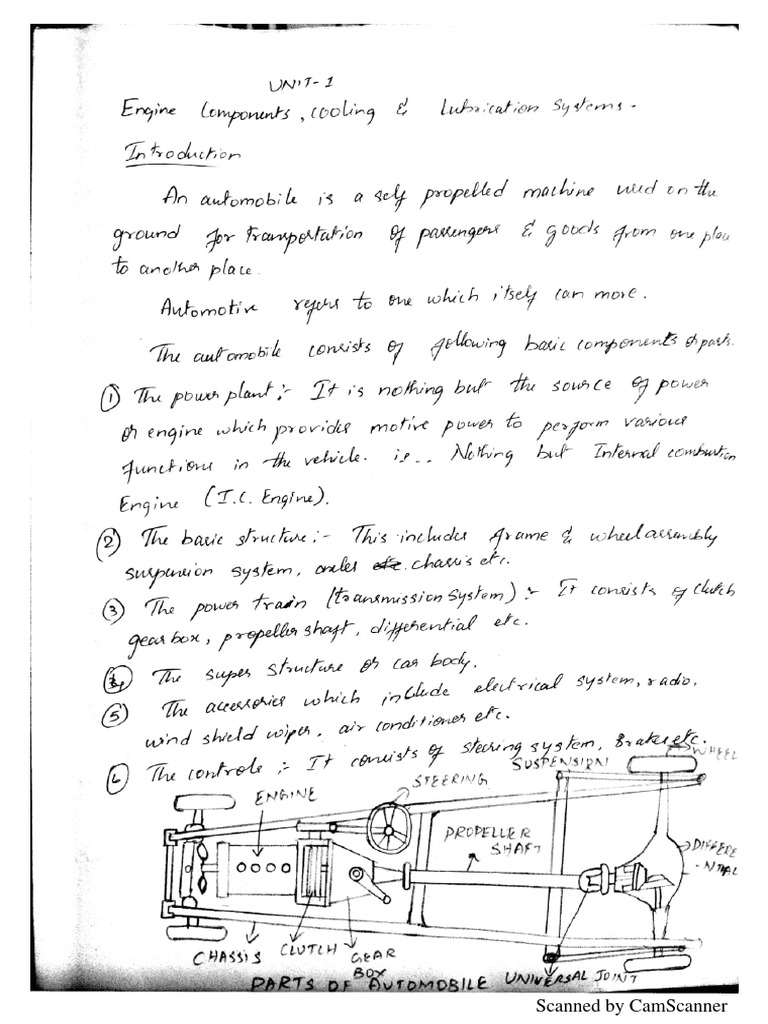 UNIT-1
Engine Components, cooling & Lubrication Systems.
Introduction
An automobile is a self propelled machine used on the
ground for transportation of passengers & goods from one place
to another place.
Automotive refers to one which itself can move.
The automobile consists of following basic components or parts.
① The power plant :- It is nothing but the source of power
or engine which provides motive power to perform various
functions in the vehicle. is.. Nothing but Internal combustion
Engine (I.C. Engine).
② The basic structure :- This includes frame & wheel assembly
suspension system, axles etc. chassis etc.
③ The power train (transmission system) :- It consists of clutch
gear box, propeller shaft, differential etc.
④ The super structure or car body.
⑤ The accessories which include electrical system, radio,
wind shield wiper, air conditioner etc.
⑥ The controls :- It consists of steering system, Brakes etc.
WHEEL
SUSPENSION
STEERING
ENGINE
PROPELLER
SHAFT
DIFFERE
-NTIAL
CHASSIS
CLUTCH
GEAR
BOX
UNIVERSAL JOINT
PARTS OF AUTOMOBILE
Scanned by CamScanner